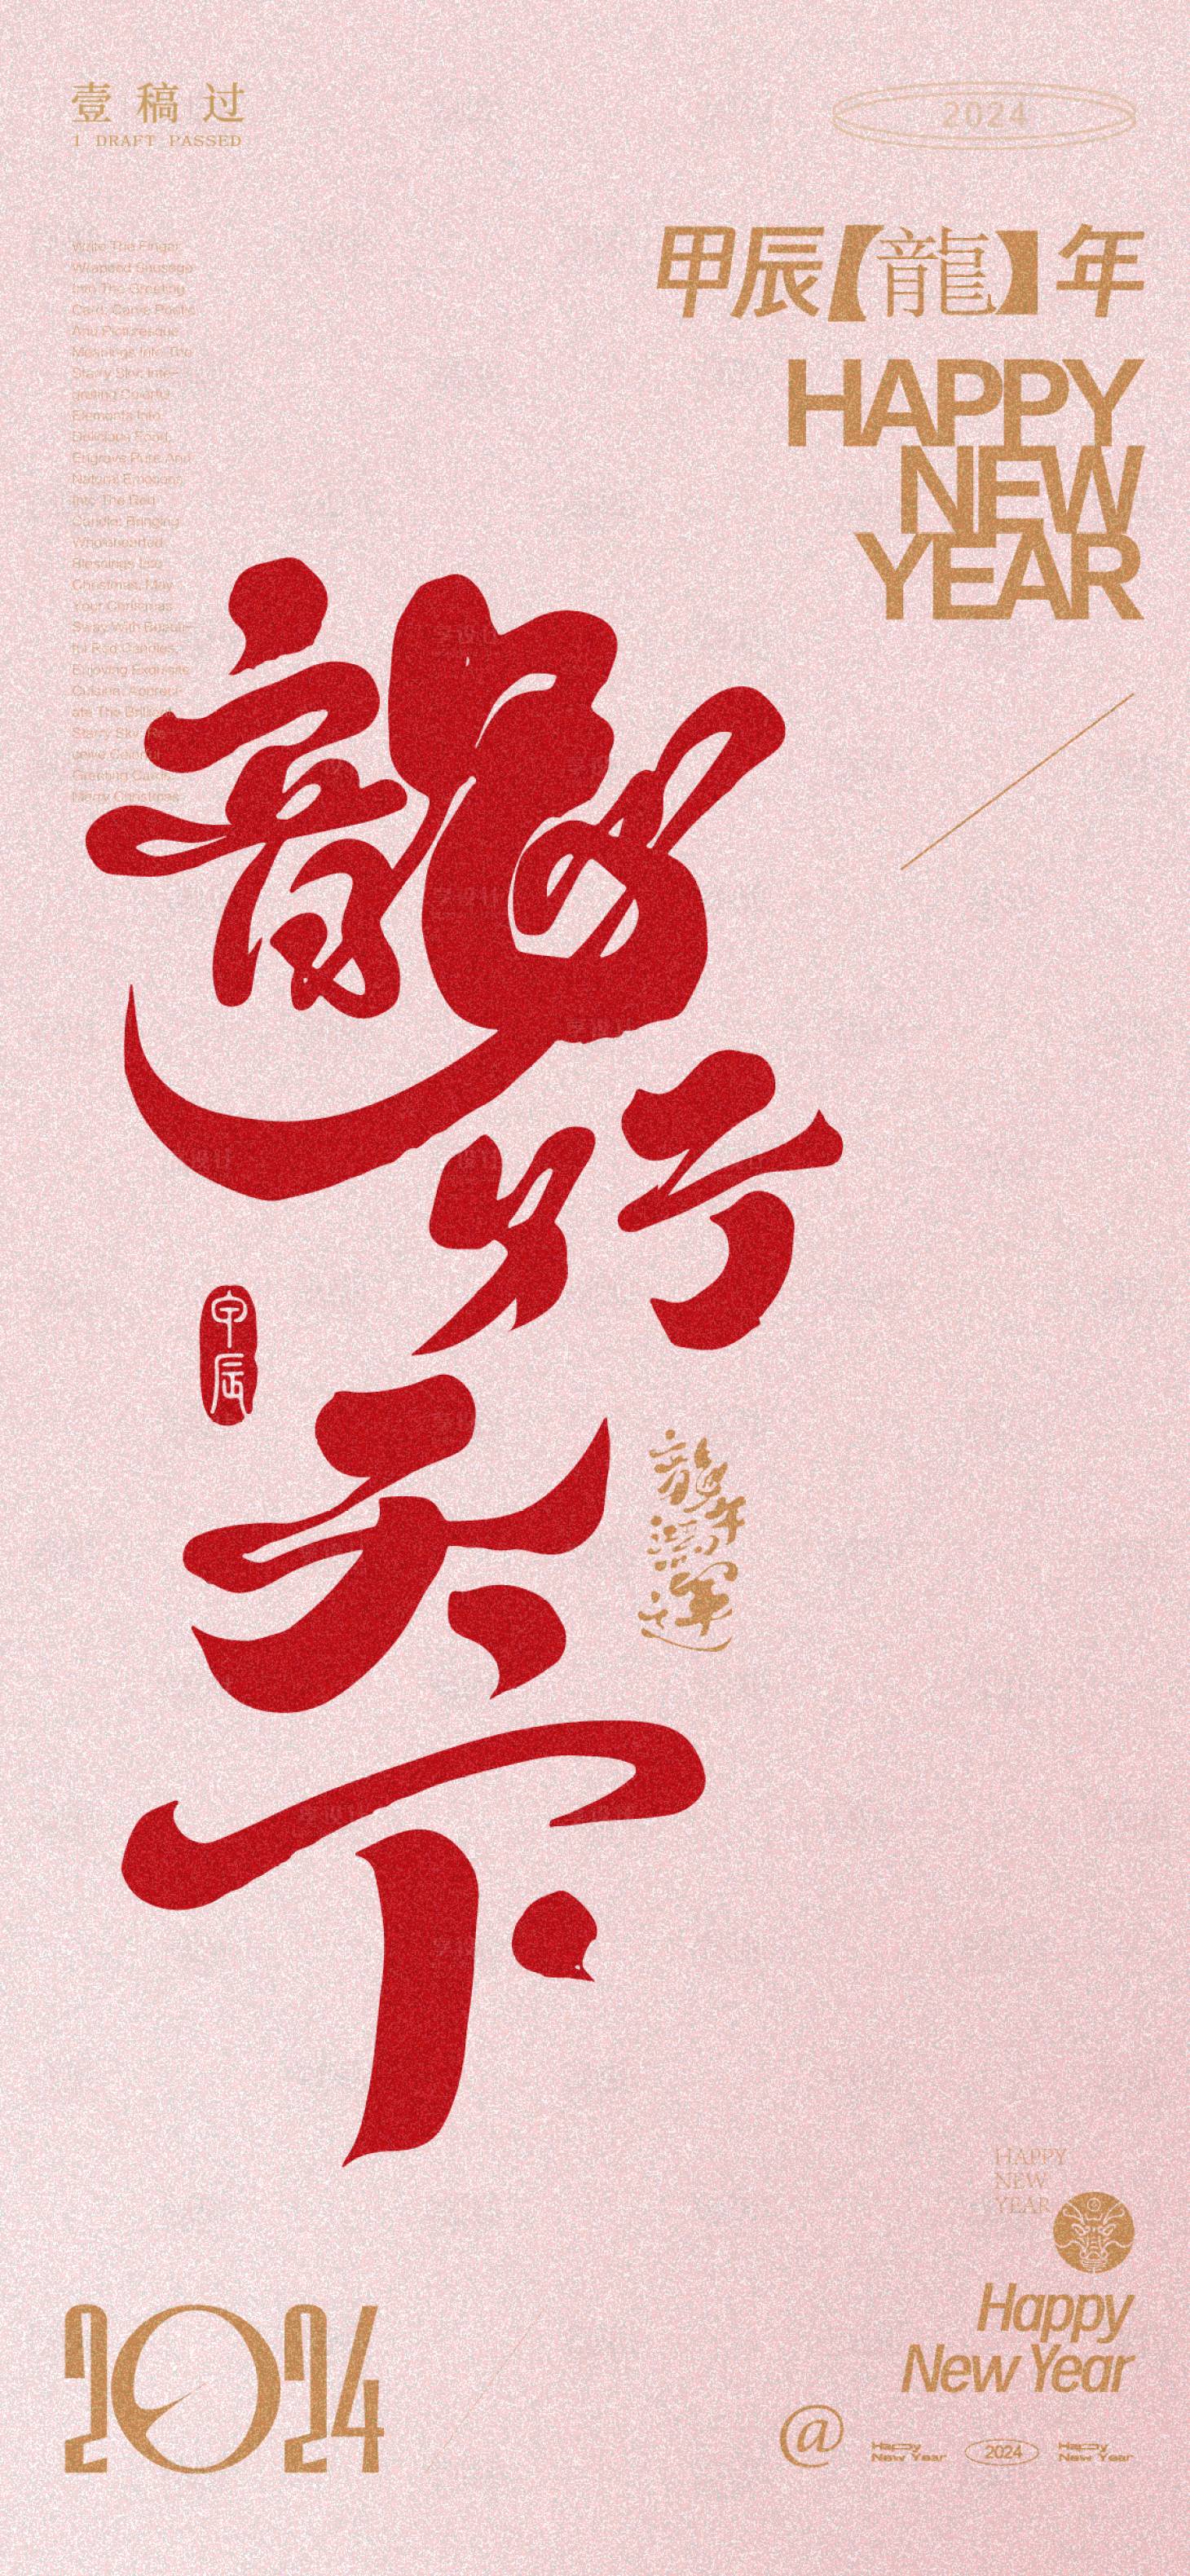 壹稿过
1 DRAFT PASSED
2024
甲辰【龍】年
HAPPY
NEW
YEAR
Write The Finger
Wrapped Sausage
Into The Greeting
Card, Carve Poetic
And Picturesque
Meanings Into The
Starry Sky, Inte-
grating Colorful
Elements Into
Delicious Food,
Engrave Pure And
Natural Emotions
Into The Red
Candle, Bringing
Wholehearted
Blessings Into
Christmas. May
Your Christmas
Sway With Beauti-
ful Red Candles,
Enjoying Exquisite
Cuisine, Appreci-
ate The Brilliant
Starry Sky,
Colorful
Greeting Cards.
Merry Christmas.
龍行天下
甲辰
龍年鴻運
HAPPY
NEW
YEAR
Happy
New Year
2024
@
Happy
New Year
2024
Happy
New Year